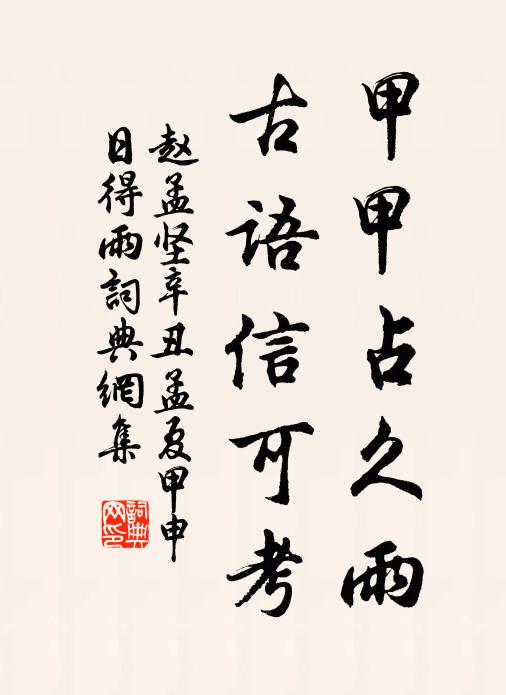 甲甲占久雨
古語信可考
赵孟坚辛丑孟夏甲申
日得雨詞典網集
詞典网印